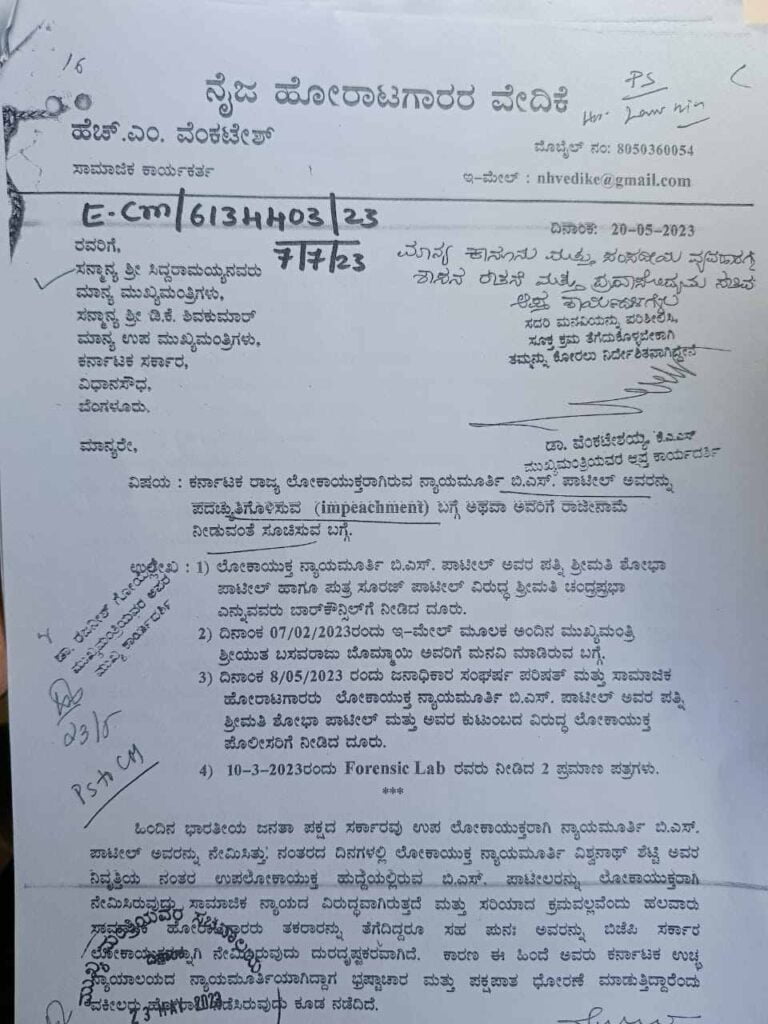 16
PS
ನೈಜ ಹೋರಾಟಗಾರರ ವೇದಿಕೆ
ಹೆಚ್.ಎಂ. ವೆಂಕಟೇಶ್
ಸಾಮಾಜಿಕ ಕಾರ್ಯಕರ್ತ
ಮೊಬೈಲ್ ನಂ: 8050360054
ಇ-ಮೇಲ್ : nhvedike@gmail.com
E-Cm/6134403/23
7/7/23
ದಿನಾಂಕ: 20-05-2023
ರವರಿಗೆ,
ಸನ್ಮಾನ್ಯ ಶ್ರೀ ಸಿದ್ದರಾಮಯ್ಯನವರು
ಮಾನ್ಯ ಮುಖ್ಯಮಂತ್ರಿಗಳು,
ಸನ್ಮಾನ್ಯ ಶ್ರೀ ಡಿ.ಕೆ. ಶಿವಕುಮಾರ್
ಮಾನ್ಯ ಉಪ ಮುಖ್ಯಮಂತ್ರಿಗಳು,
ಕರ್ನಾಟಕ ಸರ್ಕಾರ,
ವಿಧಾನಸೌಧ,
ಬೆಂಗಳೂರು.
ಮಾನ್ಯ ಕಾನೂನು ಮತ್ತು ಸಂಸದೀಯ ವ್ಯವಹಾರಗಳ
ಶಾಸನ ರಚನೆ ಮತ್ತು ಪ್ರವಾಸೋದ್ಯಮ ಸಚಿವ
ಆಪ್ತ
ಸದರಿ ಮನವಿಯನ್ನು ಪರಿಶೀಲಿಸಿ,
ಸೂಕ್ತ ಕ್ರಮ ತೆಗೆದುಕೊಳ್ಳಬೇಕಾಗಿ
ತಮ್ಮನ್ನು ಕೋರಲು ನಿರ್ದೇಶಿತನಾಗಿದ್ದೇನೆ
ಡಾ. ವೆಂಕಟೇಶಯ್ಯ, ಕೆ.ಎ.ಎಸ್
ಮುಖ್ಯಮಂತ್ರಿಯವರ ಆಪ್ತ ಕಾರ್ಯದರ್ಶಿ
ಮಾನ್ಯರೇ,
ವಿಷಯ : ಕರ್ನಾಟಕ ರಾಜ್ಯ ಲೋಕಾಯುಕ್ತರಾಗಿರುವ ನ್ಯಾಯಮೂರ್ತಿ ಬಿ.ಎಸ್. ಪಾಟೀಲ್ ಅವರನ್ನು
ಪದಚ್ಯುತಿಗೊಳಿಸುವ (impeachment) ಬಗ್ಗೆ ಅಥವಾ ಅವರಿಗೆ ರಾಜೀನಾಮೆ
ನೀಡುವಂತೆ ಸೂಚಿಸುವ ಬಗ್ಗೆ.
ಉಲ್ಲೇಖ : 1) ಲೋಕಾಯುಕ್ತ ನ್ಯಾಯಮೂರ್ತಿ ಬಿ.ಎಸ್. ಪಾಟೀಲ್ ಅವರ ಪತ್ನಿ ಶ್ರೀಮತಿ ಶೋಭಾ
ಪಾಟೀಲ್ ಹಾಗೂ ಪುತ್ರ ಸೂರಜ್ ಪಾಟೀಲ್ ವಿರುದ್ಧ ಶ್ರೀಮತಿ ಚಂದ್ರಪ್ರಭಾ
ಎನ್ನುವವರು ಬಾರ್‌ಕೌನ್ಸಿಲ್‌ಗೆ ನೀಡಿದ ದೂರು.
2) ದಿನಾಂಕ 07/02/2023ರಂದು ಇ-ಮೇಲ್ ಮೂಲಕ ಅಂದಿನ ಮುಖ್ಯಮಂತ್ರಿ
ಶ್ರೀಯುತ ಬಸವರಾಜು ಬೊಮ್ಮಾಯಿ ಅವರಿಗೆ ಮನವಿ ಮಾಡಿರುವ ಬಗ್ಗೆ.
3) ದಿನಾಂಕ 8/05/2023 ರಂದು ಜನಾಧಿಕಾರ ಸಂಘರ್ಷ ಪರಿಷತ್ ಮತ್ತು ಸಾಮಾಜಿಕ
ಹೋರಾಟಗಾರರು ಲೋಕಾಯುಕ್ತ ನ್ಯಾಯಮೂರ್ತಿ ಬಿ.ಎಸ್. ಪಾಟೀಲ್ ಅವರ ಪತ್ನಿ
ಶ್ರೀಮತಿ ಶೋಭಾ ಪಾಟೀಲ್ ಮತ್ತು ಅವರ ಕುಟುಂಬದ ವಿರುದ್ಧ ಲೋಕಾಯುಕ್ತ
ಪೊಲೀಸರಿಗೆ ನೀಡಿದ ದೂರು.
4) 10-3-2023ರಂದು Forensic Lab ರವರು ನೀಡಿದ 2 ಪ್ರಮಾಣ ಪತ್ರಗಳು.
***
ಡಾ. ರಜನೀಶ್ ಗೋಯಲ್
ಮುಖ್ಯಮಂತ್ರಿಯವರ ಅಪರ
ಮುಖ್ಯ ಕಾರ್ಯದರ್ಶಿ
23/5
PS to CM
ಹಿಂದಿನ ಭಾರತೀಯ ಜನತಾ ಪಕ್ಷದ ಸರ್ಕಾರವು ಉಪ ಲೋಕಾಯುಕ್ತರಾಗಿ ನ್ಯಾಯಮೂರ್ತಿ ಬಿ.ಎಸ್.
ಪಾಟೀಲ್ ಅವರನ್ನು ನೇಮಿಸಿತ್ತು; ನಂತರದ ದಿನಗಳಲ್ಲಿ ಲೋಕಾಯುಕ್ತ ನ್ಯಾಯಮೂರ್ತಿ ವಿಶ್ವನಾಥ್ ಶೆಟ್ಟಿ ಅವರ
ನಿವೃತ್ತಿಯ ನಂತರ ಉಪಲೋಕಾಯುಕ್ತ ಹುದ್ದೆಯಲ್ಲಿರುವ ಬಿ.ಎಸ್. ಪಾಟೀಲರನ್ನು ಲೋಕಾಯುಕ್ತರಾಗಿ
ನೇಮಿಸಿರುವುದು ಸಾಮಾಜಿಕ ನ್ಯಾಯದ ವಿರುದ್ಧವಾಗಿರುತ್ತದೆ ಮತ್ತು ಸರಿಯಾದ ಕ್ರಮವಲ್ಲವೆಂದು ಹಲವಾರು
ಸಾಮಾಜಿಕ ಹೋರಾಟಗಾರರು ತಕರಾರನ್ನು ತೆಗೆದಿದ್ದರೂ ಸಹ ಪುನಃ ಅವರನ್ನು ಬಿಜೆಪಿ ಸರ್ಕಾರ
ಲೋಕಾಯುಕ್ತರನ್ನಾಗಿ ನೇಮಿಸಿರುವುದು ದುರದೃಷ್ಟಕರವಾಗಿದೆ. ಕಾರಣ ಈ ಹಿಂದೆ ಅವರು ಕರ್ನಾಟಕ ಉಚ್ಛ
ನ್ಯಾಯಾಲಯದ ನ್ಯಾಯಮೂರ್ತಿಯಾಗಿದ್ದಾಗ ಭ್ರಷ್ಟಾಚಾರ ಮತ್ತು ಪಕ್ಷಪಾತ ಧೋರಣೆ ಮಾಡುತ್ತಿದ್ದಾರೆಂದು
ವಕೀಲರು ನಡೆಸಿರುವುದು ಕೂಡ ನಡೆದಿದೆ.